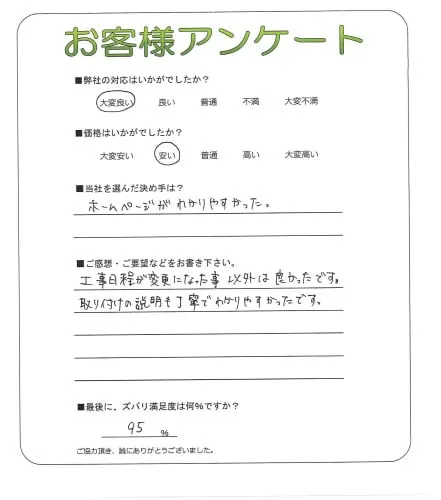 お客様アンケート
■弊社の対応はいかがでしたか?
大変良い 良い 普通 不満 大変不満
■価格はいかがでしたか?
大変安い 安い 普通 高い 大変高い
■当社を選んだ決め手は?
ホームページがわかりやすかった。
■ご感想・ご要望などをお書き下さい。
工事日程が変更になった事以外は良かったです。
取り付けの説明も丁寧でわかりやすかったです。
■最後に、ズバリ満足度は何%ですか?
95 %
ご協力頂き、誠にありがとうございました。